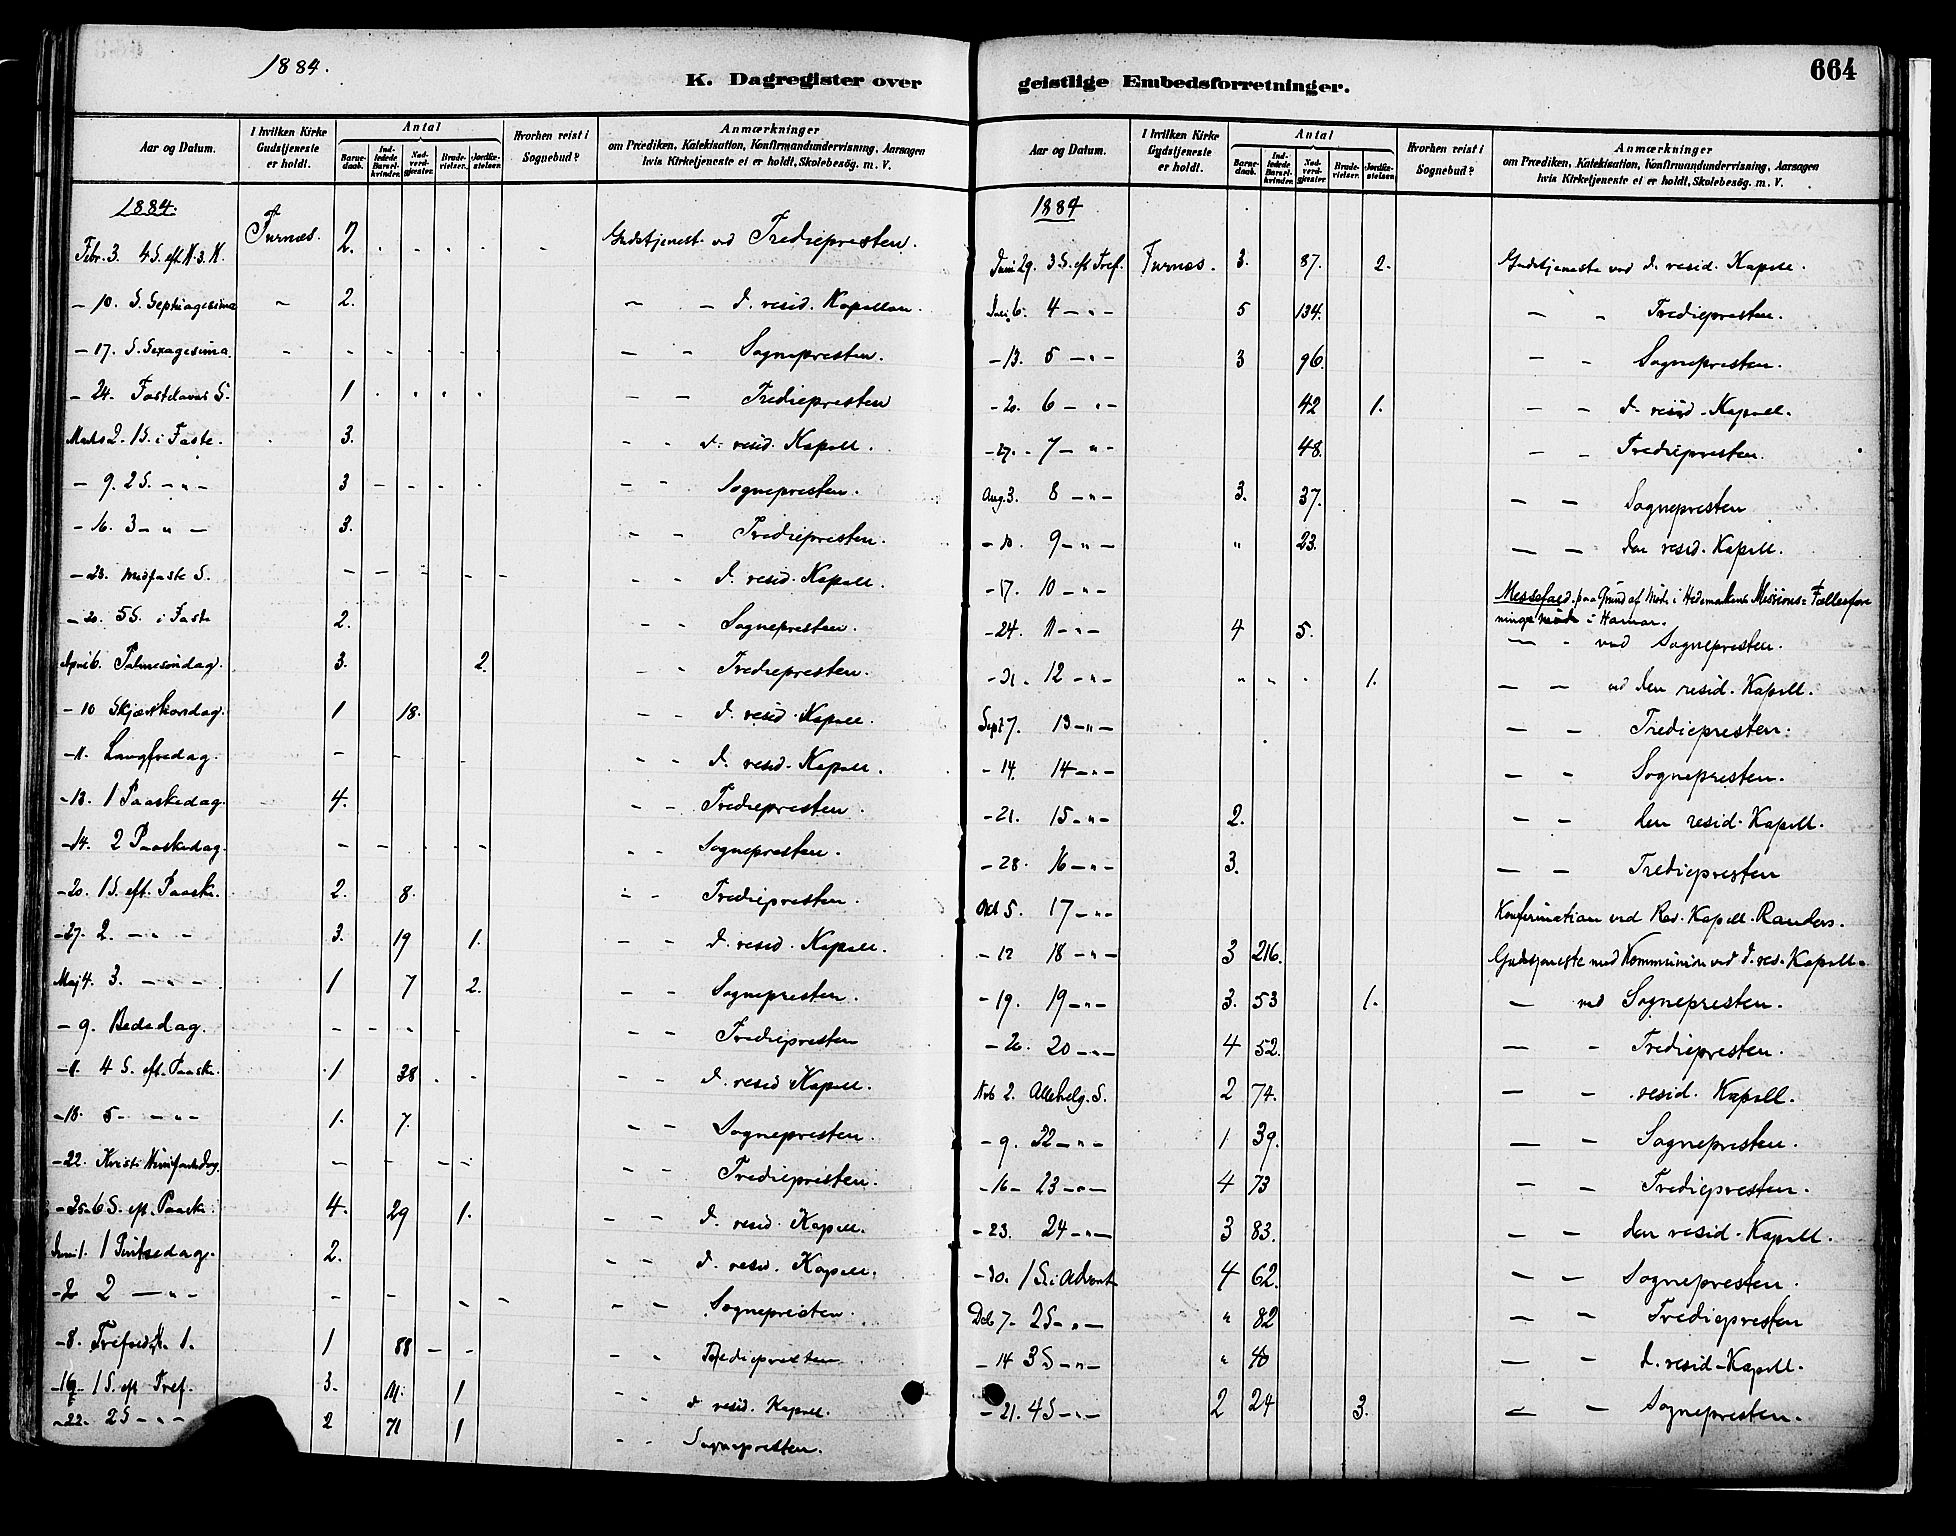 1884.
K. Dagregister over
Aar og Datum.
I hvilken Kirke Gudstjeneste er holdt.
Antal
Barnedaab.
Indledede Barselkvinder.
Nadverdgjester.
Brudevielser.
Jordfæstelser.
Hvorhen reist i Sognebud?
Anmærkninger
om Prædiken, Katekisation, Konfirmandundervisning, Aarsagen
hvis Kirketjeneste ei er holdt, Skolebesög. m. V.
1884.
Febr. 3. 4 S. eft. H. 3. K. Furnæs. 2. Gudstjenest ved Trediepresten.
- 10. S. Septuagesima - 2. - - d. resid. Kapellan.
- 17. S. Sexagesima. - - Sognepresten.
- 24. Fastelavns S. 1 - - Trediepresten
Marts 2. 1 S. i Faste. 3. - - d. resid. Kapell.
- 9. 2 S. - " - 3 - - Sognepresten.
- 16. 3 - " - 3. - - Trediepresten.
- 23. Midfaste S. - - d. resid. Kapell.
- 30. 5 S. i Faste 2. - - Sognepresten.
April 6. Palmesöndag. 3. 2. - - Trediepresten.
- 10 Skjærtorsdag. 1 18. - - d. resid. Kapell.
- 11. Langfredag. - - d. resid. Kapell.
- 13. 1 Paaskedag. 4. - - Trediepresten.
- 14. 2 Paaskedag. - - Sognepresten.
- 20. 1 S. eft. Paaske. 2. 8. - - Trediepresten.
- 27. 2. - " - 3. 19 1. - - d. resid. Kapell.
Maj 4. 3. - " - 1 7 2. - - Sognepresten.
- 9. Bededag. - - Trediepresten
- 11. 4 S. eft. Paaske. 1 38 - - d. resid Kapell.
- 18. 5 - " - 1. 7. - - Sognepresten.
- 22. Kristi Himfartsdag. - - Trediepresten.
- 25. 6 S. eft. Paaske. 4. 29 1. - - d. resid. Kapell.
Juni 1. 1 Pintsedag. 2. - - d. resid. Kapell.
- 2 2 - " - - - Sognepresten.
- 8. 1. 1 88 - - Trediepresten
- 1 S. eft Tref. 3. 1 - - d resid. Kapell.
- 22. 2 S - " - 2 71 1 - - Sognepresten.
geistlige Embedsforretninger.
664
Aar og Datum.
I hvilken Kirke Gudstjeneste er holdt.
Antal
Barnedaab.
Indledede Barselkvinder.
Nadverdgjester.
Brudevielser.
Jordfæstelser.
Hvorhen reist i Sognebud?
Anmærkninger
om Prædiken, Katekisation, Konfirmandundervisning, Aarsagen
hvis Kirketjeneste ei er holdt, Skolebesög. m. V.
1884
Juni 29. 3 S. eft Tref. Furnæs. 3. 87. 2. Gudstjeneste ved d. resid. Kapell.
Juli 6. 4 - " - 5 134. - - Trediepresten.
- 13. 5 - " - 3 96. - - Sognepresten.
- 20. 6 - " - 42 1. - - d. resid. Kapell.
- 27. 7 - " - 48. - - Trediepresten.
Aug. 3. 8 - " - 3. 37. - - Sognepresten
- 10. 9 - " - " 23. - - den resid. Kapell.
- 17. 10 - " - Messefald paa Grund af Möde i Hedemarkens Missions=Fællesfore
ningsmöde i Hamar.
- 24. 11 - " - 4 5. - - ved Sognepresten.
- 31. 12 - " - 1. - - ved den resid. Kapell.
Sept 7. 13 - " - - - Trediepresten.
- 14. 14 - " - - - Sognepresten.
- 21. 15 - " - 2. - - den resid. Kapell.
- 28. 16 - " - 3. - - Trediepresten
Okt 5. 17 - " - Konfirmation ved Res. Kapell. Randers.
- 12 18 - " - 3 216. Gudstjeneste med Kommunion ved d. res. Kapell.
- 19. 19 - " - 3. 53 1. - ved Sognepresten.
- 26. 20 - " - 4 52. - - Trediepresten.
Nvb 2. Allehelg. S. 2 74. - - resid. Kapell.
- 9. 22 - " - 1 39. - - Sognepresten.
- 16 - 23 - " - 4 73 - - Trediepresten.
- 23. 24 - " - 3 83. - - den resid. Kapell.
- 30. 1 S. i Advent 4 62. - - Sognepresten.
Deb 7 - 2 S - " - " 82 - - Trediepresten
- 14 3 S - " - " 40 - - d. resid. Kapell.
- 21. 4 S - " - 2 24 3. - - Sognepresten.